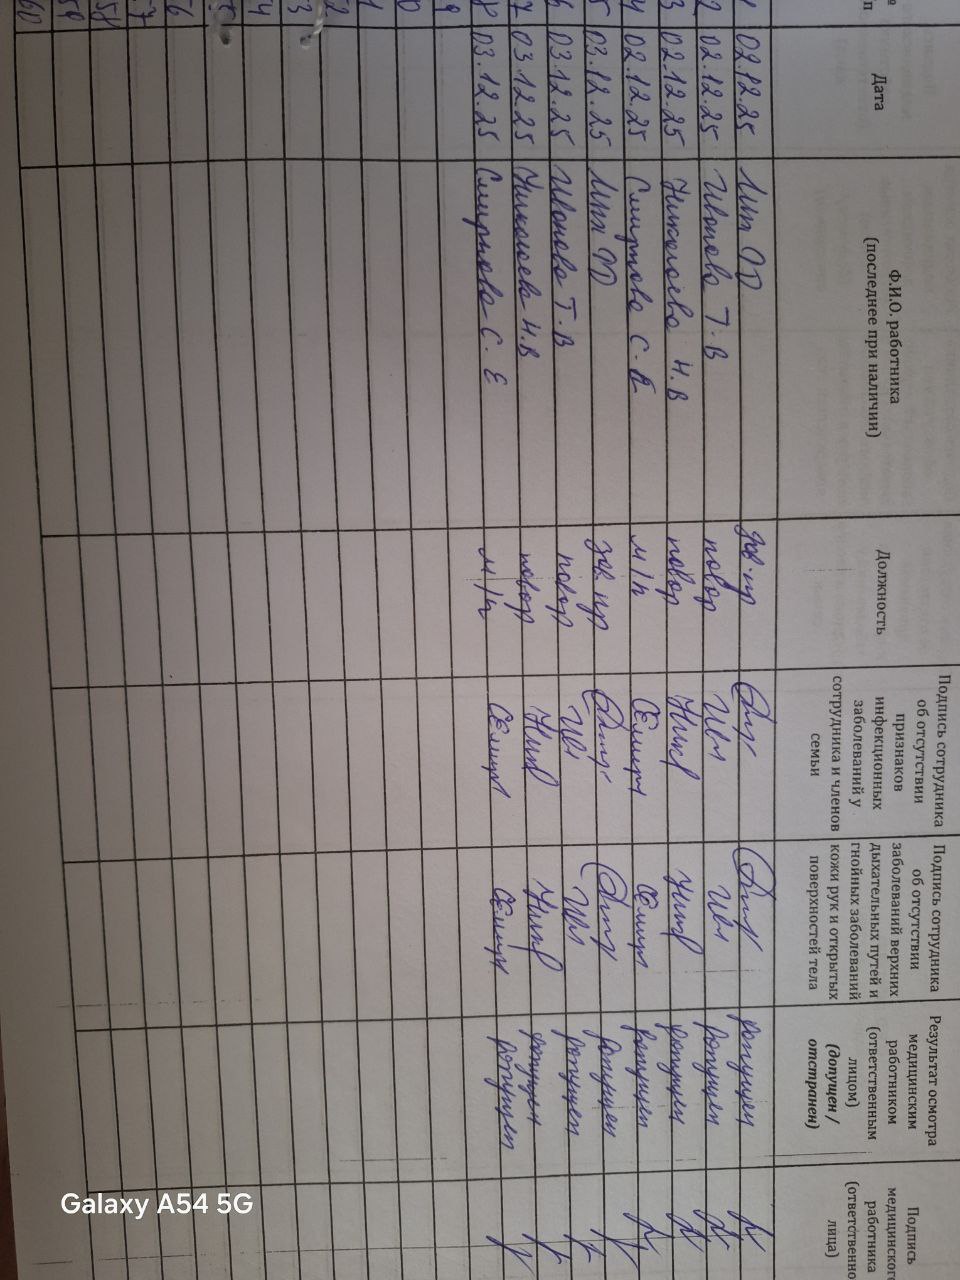 № п/п
Дата
Ф.И.О. работника
(последнее при наличии)
Должность
Подпись сотрудника
об отсутствии
признаков
инфекционных
заболеваний у
сотрудника и членов
семьи
Подпись сотрудника
об отсутствии
заболеваний верхних
дыхательных путей и
гнойных заболеваний
кожи рук и открытых
поверхностей тела
Результат осмотра
медицинским
работником
(ответственным
лицом)
(допущен /
отстранен)
Подпись
медицинского
работника
(ответственно
лица)
1 02.12.25 зав. пр допущен
2 02.12.25 Иванова Т. В повар допущен
3 02.12.25 Николаева Н. В повар допущен
4 02.12.25 Смирнова С. Е м/п допущен
5 03.12.25 зав. пр допущен
6 03.12.25 Иванова Т. В повар допущен
7 03.12.25 Николаева Н. В повар допущен
8 03.12.25 Смирнова С. Е м/п допущен
9
0
1
2
3
4
5
6
7
58
59
60
Galaxy A54 5G